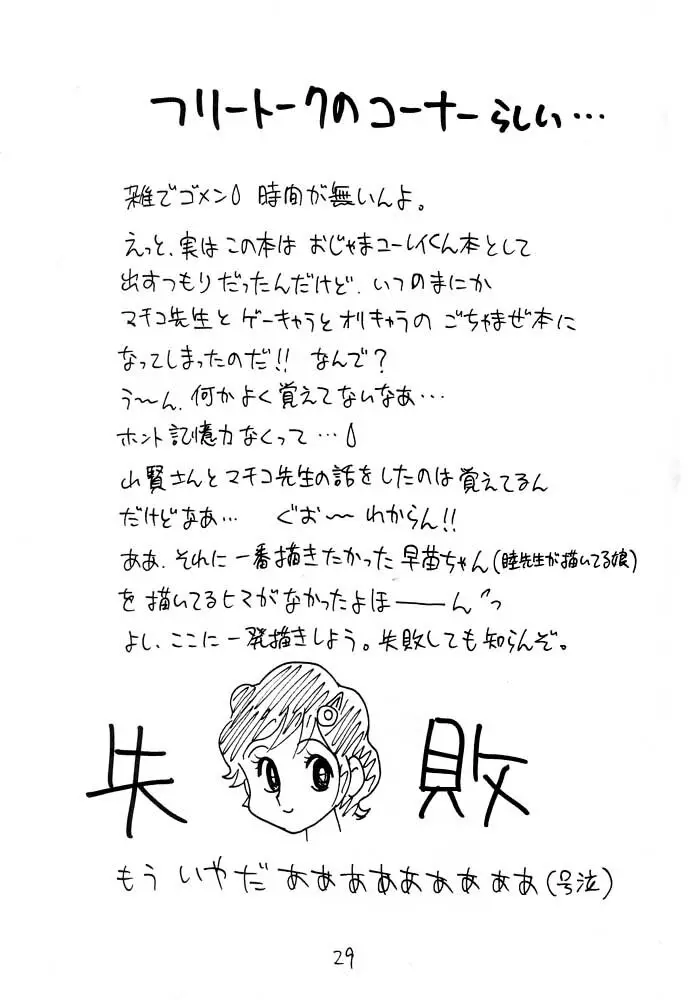 フリートークのコーナーらしい…
雑でゴメン 時間が無いんよ。
えっと、実はこの本は おじゃまユーレイくん本として
出すつもりだったんだけど、いつのまにか
マチコ先生と ゲーキャラとオリキャラの ごちゃまぜ本に
なってしまったのだ!! なんで?
う〜ん、何かよく覚えてないなあ…
ホント記憶力なくって…
山賢さんと マチコ先生の話をしたのは覚えてるん
だけどなあ… ぐお〜わからん!!
ああ、それに一番描きたかった早苗ちゃん(睦先生が描いてる娘)
を描いてるヒマがなかったよほ――んっ
よし、ここに一発描きしよう。失敗しても知らんぞ。
失敗
もういやだあああああああああ(号泣)
29